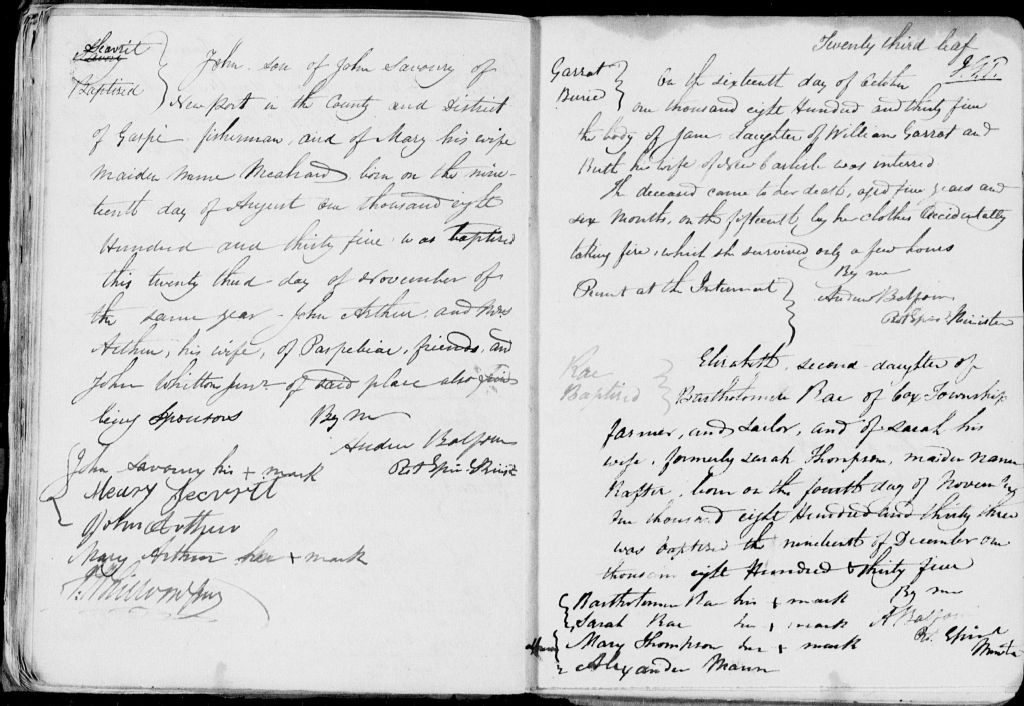 Seavrit
Savory
Baptized
John son of John Savoury of
New port in the County and District
of Gaspé fisherman, and of Mary his wife
maiden name born on the nine-
teenth day of August one thousand eight
Hundred and thirty five was baptized
this twenty third day of November of
the same year. John Arthur and Mrs
Arthur, his wife, of Paspebiac, friends, and
John Whitton junr of said place also
being sponsors By me
Andrew Balfour
Prot Epis Minist
John Savoury his + mark
Meary
John Arthur
Mary Arthur her + mark
Twenty third leaf
Garrat
Buried
On the sixteenth day of October
one thousand eight Hundred and thirty five
the body of Jane daughter of William Garrat and
Ruth his wife of New Carlisle was interred
The deceased came to her death, aged five years and
six months, on the fifteenth, by her clothes accidentally
taking fire, which she survived only a few hours
By me
Present at the Interment
Andrew Balfour
Prot Epis Minister
Rae
Baptized
Elizabeth, second daughter of
Bartholomew Rae of Cox Township
farmer, and sailor, and of Sarah his
wife, formerly Sarah Thompson, maiden name
Rafter, born on the fourth day of Novem
one thousand eight Hundred and thirty three
was baptized the nineteenth of December one
thousand eight Hundred & thirty five
Bartholomew Rae his + mark By me
Sarah Rae her + mark A Balfour
Mary Thompson her + mark Pro. Episc
Alexander Mann Minister